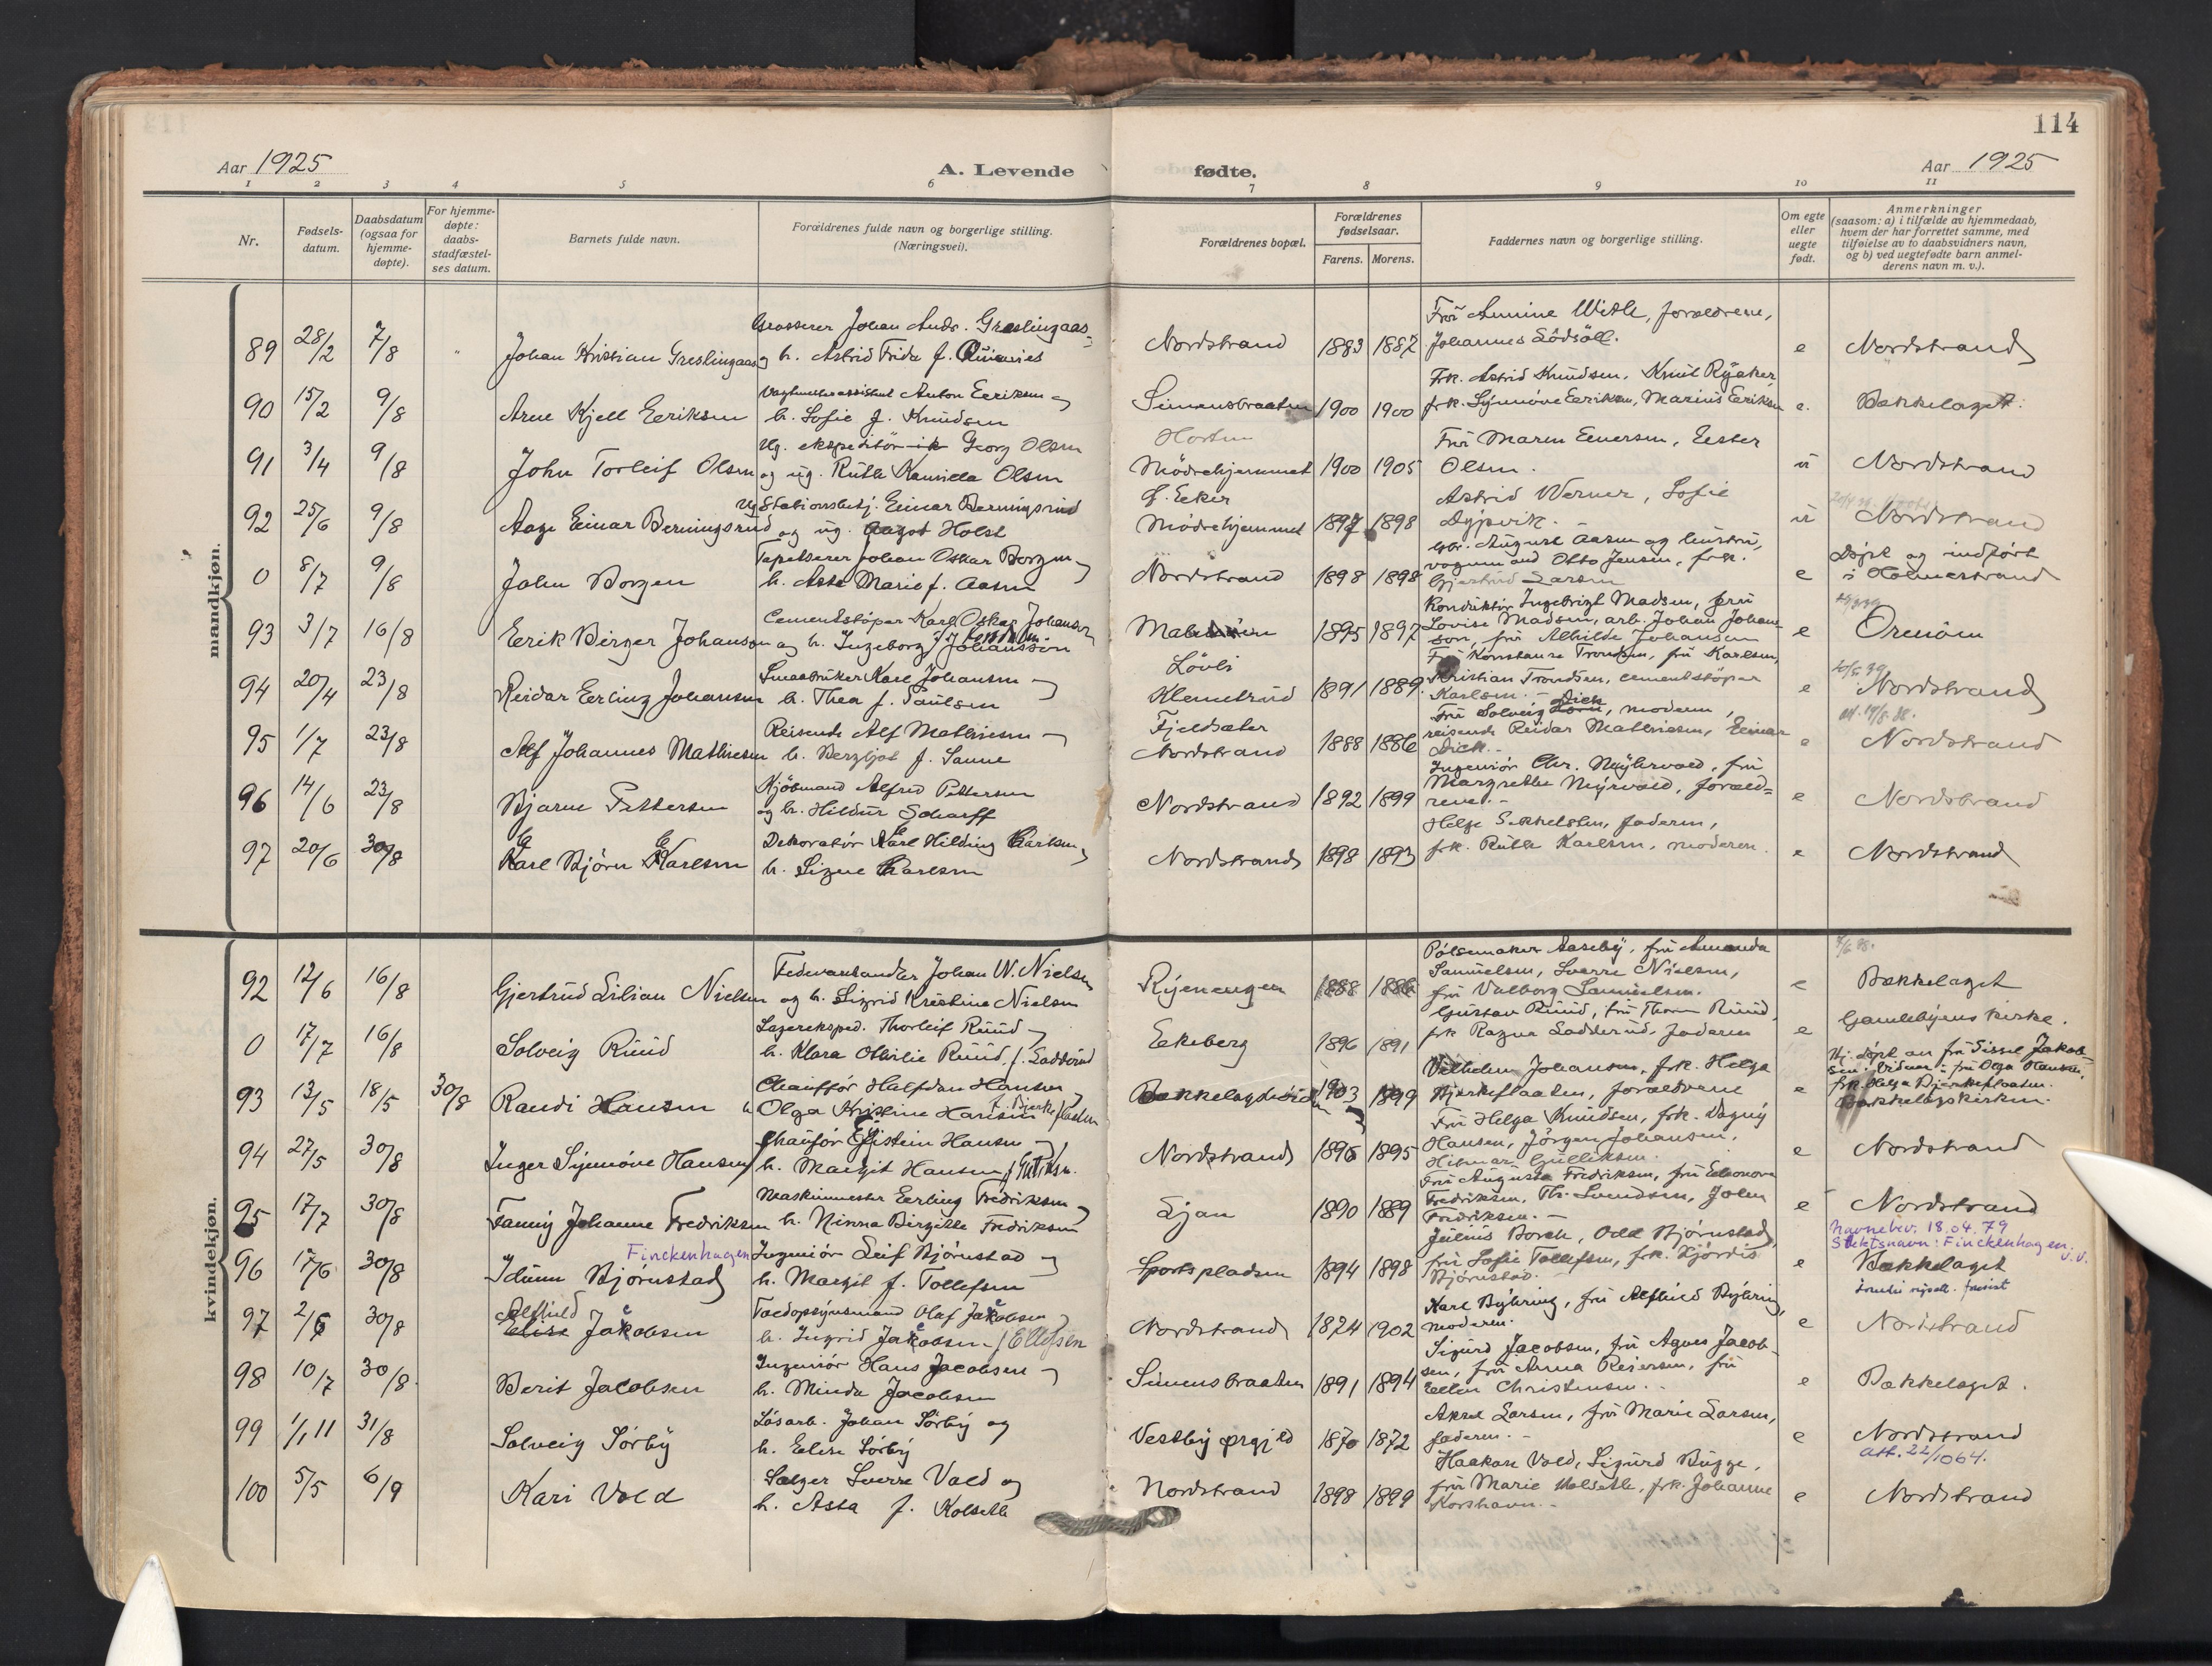 114
Aar 1925
A. Levende
fødte.
Aar 1925
1 2 3 4 5 6 7 8 9 10 11
Nr.
Fødsels-
datum.
Daabsdatum
(ogsaa for
hjemme-
døpte).
For hjemme-
døpte:
daabs-
stadfæstel-
ses datum.
Barnets fulde navn.
Forældrenes fulde navn og borgerlige stilling.
(Næringsvei).
Forældrenes bopæl.
Forældrenes
fødselsaar.
Farens. Morens.
Faddernes navn og borgerlige stilling.
Om egte
eller
uegte
født.
Anmerkninger
(saasom: a) i tilfælde av hjemmedaab,
hvem der har forrettet samme, med
tilføielse av to daabsvidners navn,
og b) ved uegtefødte barn anmel-
derens navn m. v.).
mandkjøn.
89 28/2 7/8 " Johan Kristian Greslingaas
Grosserer Johan Andr. Greslingaas
og h. Astrid Frida f.
Nordstrand 1883 1887
Fru Annine With, forældrene,
Johannes
e Nordstrand
90 15/2 9/8 Arne Kjell Eeriksen
Anton Eeriksen og
h. Sofie f. Knudsen
Simensbraaten 1900 1900
Frk. Astrid Knudsen, Knut Ryaker,
frk. Synnöve Eeriksen, Marius Eeriksen
e. Bækkelaget.
91 3/4 9/8 John Torleif Olsen
Ug. ekspeditör Georg Olsen
og ug. Ruth Olsen
Horten
Mödrehjemmet 1900 1905
Fru Maren Eenersen, Eester
Olsen.
u Nordstrand
92 25/6 9/8 Aage Einar Berningsrud
Ug Stationsbetj. Einar Berningsrud
og ug. Aagot Holst
Ö. Eeker
Mödrehjemmet 1897 1898
Astrid Werner, Sofie
Dypvik.
u Nordstrand
0 8/7 9/8 John Borgen
Tapetserer Johan Oskar Borgen og
h. Asta Marie f. Aasen
Nordstrand 1898 1898
Gbr. August Aasen og hustru,
vognmand Otto Jensen, frk.
Gjertrud Larsen
e Döpt og indfört
i Holmestrand
93 3/7 16/8 Eerik Birger Johanson
Cementstöper Karl Oskar Johanson
og h. Ingeborg f. Johansson
1895 1897
Konduktör Ingebrigt Madsen, fru
Lovise Madsen, arb. Johan Johan-
son, fru Alhilde Johansen
e Ormöen
94 20/4 23/8 Reidar Eerling Johansen
Smaabruker Karl Johansen og
h. Thea f. Paulsen
Lövli
Klemetsrud 1891 1889
Fru Konstance Trondsen, fru Karlsen,
Kristian Trondsen, cementstöper
Karlsen.
e Nordstrand
95 1/7 23/8 Alf Johannes Mathiesen
Reisende Alf Mathiesen og
h. Bergljot f. Sanne
Fjeldsæter
Nordstrand 1888 1886
Fru Solveig Dick, moderen,
reisende Reidar Mathiesen, Einar
Dick.
e Nordstrand
96 14/6 23/8 Bjarne Pettersen
Kjöbmand Alfred Pettersen
og h. Hildur Scharff
Nordstrand 1892 1899
Ingeniör Chr. Myhrvold, fru
Margrethe Myrvold, foræld-
rene.
e Nordstrand
97 20/6 30/8 Karl Björn Karlsen
Dekoratör Karl Hilding Carlsen
h. Signe Carlsen
Nordstrand 1898 1893
Helge Eskelsten, faderen,
frk. Ruth Karlsen, moderen.
e Nordstrand
kvindekjøn.
92 12/6 16/8 Gjertrud Lilian Nielsen
Fedevarehandler Johan W. Nielsen
og h. Sigrid Kristine Nielsen
Ryenengen 1888 1886
Pölsemaker Aaseby, fru Amanda
Samuelsen, Sverre Nielsen,
fru Valborg Samuelsen.
e Bækkelaget
0 17/7 16/8 Solveig Ruud
Lagereksped. Thorleif Ruud og
h. Klara Othilie Ruud, f. Ladderud
Eekeberg 1896 1891
Gustav Ruud, fru Thora Ruud,
frk Ragna Ladderud, faderen
e Gamlebyens kirke.
93 13/5 18/5 30/8 Randi Hansen
Chauffør Halfdan Hansen
h. Olga Kristine Hansen f. Bjerkeflaaten
1903 1899
Vilhelm Johansen, frk. Helga
Bjerkeflaaten, forældrene
e Hj. döpt av fru Sissel Jakob-
sen. Vidner: fru Olga Hansen,
frk. Helga Bjerkeflaaten.
Bækkelagskirken.
94 27/5 30/8 Inger Synnöve Hansen
Chauför Eystein Hansen og
h. Margit Hansen
Nordstrand 1896 1895
Fru Helga Knudsen, frk. Dagny
Hansen, Jörgen Johansen,
Hilmar Gulliksen.
e Nordstrand
95 17/7 30/8 Fanny Johanne Fredriksen
Maskinmester Eerling Fredriksen og
h. Ninna Birgitte Fredriksen
Ljan 1890 1889
Fru Augusta Fredriksen, fru Eleonora
Fredriksen, Th. Svendsen, John
Fredriksen.
e Nordstrand
96 17/6 30/8 Idunn Björnstad Finckenhagen
Ingeniör Leif Björnstad og
h. Margit f. Tollefsen
Sportspladsen 1894 1898
Julius Borch, Odd Björnstad,
fru Sofie Tollefsen, frk. Hjördis
Björnstad.
e Navnebev. 18.04.79
Slektsnavn: Finckenhagen.
Bækkelaget
97 2/6 30/8 Alfhild
Jakobsen
Toldopsynsmand Olaf Jakobsen
h. Ingrid Jakobsen f. Ellefsen
Nordstrand 1874 1902
Karl Byhring, fru Alfhild Byhring,
moderen.
e Nordstrand
98 10/7 30/8 Berit Jacobsen
Ingeniör Hans Jacobsen og
h. Minda Jacobsen
Simensbraaten 1891 1894
Sigurd Jacobsen, fru Agnes Jacob-
sen, fru Anna Reiersen, fru
Eellen Christensen.
e Bækkelaget.
99 1/11 31/8 Solveig Sörby
Lösarb. Johan Sörby og
h. Eelise Sörby
Vestby prgjld 1870 1872
Aksel Larsen, fru Marie Larsen,
faderen.
e Nordstrand
att. 22/10 64.
100 5/5 6/9 Kari Vold
Sælger Sverre Vold og
h. Assa f. Kolseth
Nordstrand 1898 1899
Haakon Vold, Sigurd Bugge,
fru Marie Kolseth, frk. Johanne
Korshavn.
e Nordstrand